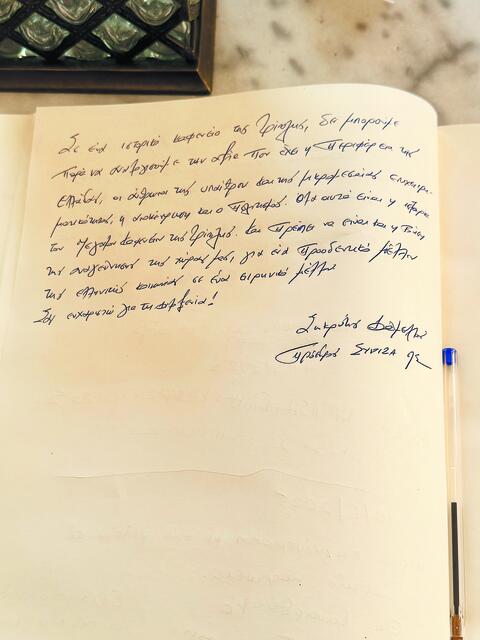 Σε ένα ιστορικό καφενείο της Τρίπολης, δε μπορούμε
παρά να συνομιλήσουμε για την αξία που έχει η Περιφέρεια της
Ελλάδας, οι άνθρωποι της υπαίθρου και της μικρομεσαίας επιχειρη-
ματικότητας, η και ο Πολιτισμός. Όλα αυτά είναι η ιστορία
του Μεγάλου Καφενείου της Τρίπολης. Και πρέπει να είναι και η
της αναγέννησης της χώρας μας, για ένα προοδευτικό μέλλον
της ελληνικής κοινωνίας σε ένα ειρηνικό μέλλον
Σας ευχαριστώ για τη φιλοξενία!
Σωκράτης Φάμελλος
Πρόεδρος ΣΥΡΙΖΑ ΠΣ